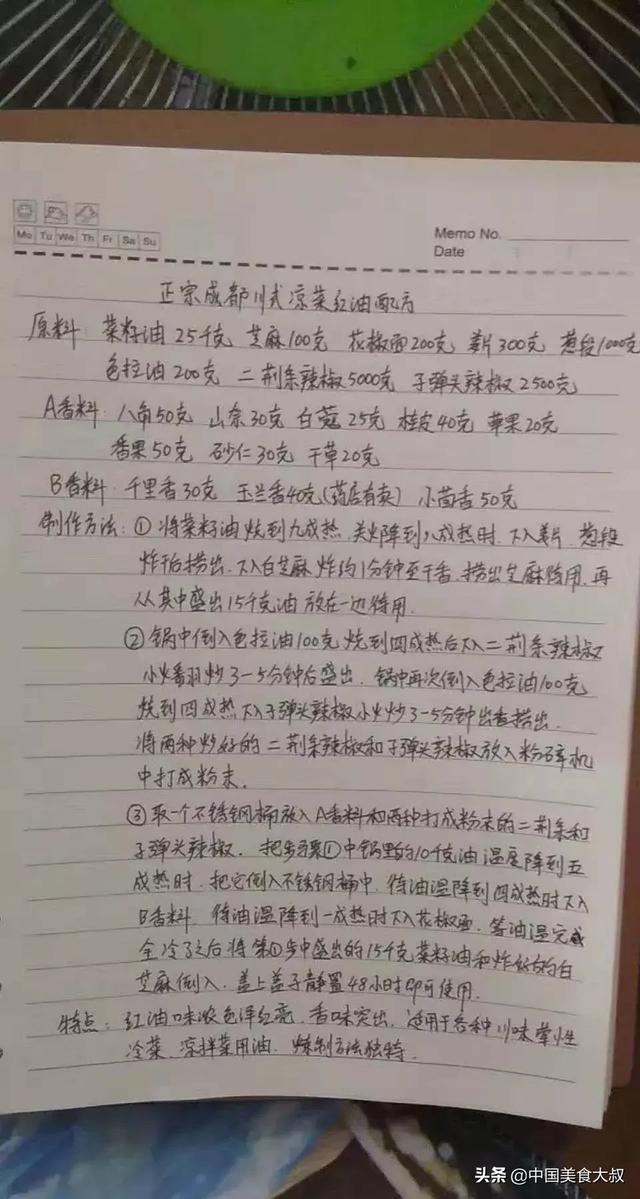 Mo Tu We Th Fr Sa Su
Memo No.
Date
正宗成都川式凉菜红油配方
原料: 菜籽油25千克 芝麻100克 花椒面200克 姜片300克 葱段1000克
色拉油200克 二荆条辣椒5000克 子弹头辣椒2500克
A香料: 八角50克 山奈30克 白蔻25克 桂皮40克 草果20克
香果50克 砂仁30克 干草20克
B香料: 千里香30克 玉兰香40克(药店有卖) 小茴香50克
制作方法: ①将菜籽油烧到九成热.关火降到八成热时.下入姜片.葱段
炸干后捞出.下入白芝麻炸约1分钟至干香.捞出芝麻待用.再
从其中盛出15千克油放在一边待用.
②锅中倒入色拉油100克烧到四成热后下入二荆条辣椒
小火番羽炒3-5分钟后盛出.锅中再次倒入色拉油100克
烧到四成热下入子弹头辣椒小火炒3-5分钟出香捞出.
将两种炒好的二荆条辣椒和子弹头辣椒放入粉碎机
中打成粉末.
③取一个不锈钢桶放入A香料和两种打成粉末的二荆条和
子弹头辣椒.把步骤①中锅里的10千克油温度降到五
成热时.把它倒入不锈钢桶中.待油温降到四成热时下入
B香料.待油温降到一成热时下入花椒面.等油温完成
全冷了之后将第①步中盛出的15千克菜籽油和炸好的白
芝麻倒入.盖上盖子静置48小时即可使用.
特点: 红油味浓色泽红亮.香味突出.适用于各种川味荤性
冷菜.凉拌菜用油.炼制方法独特.
头条 @中国美食大叔